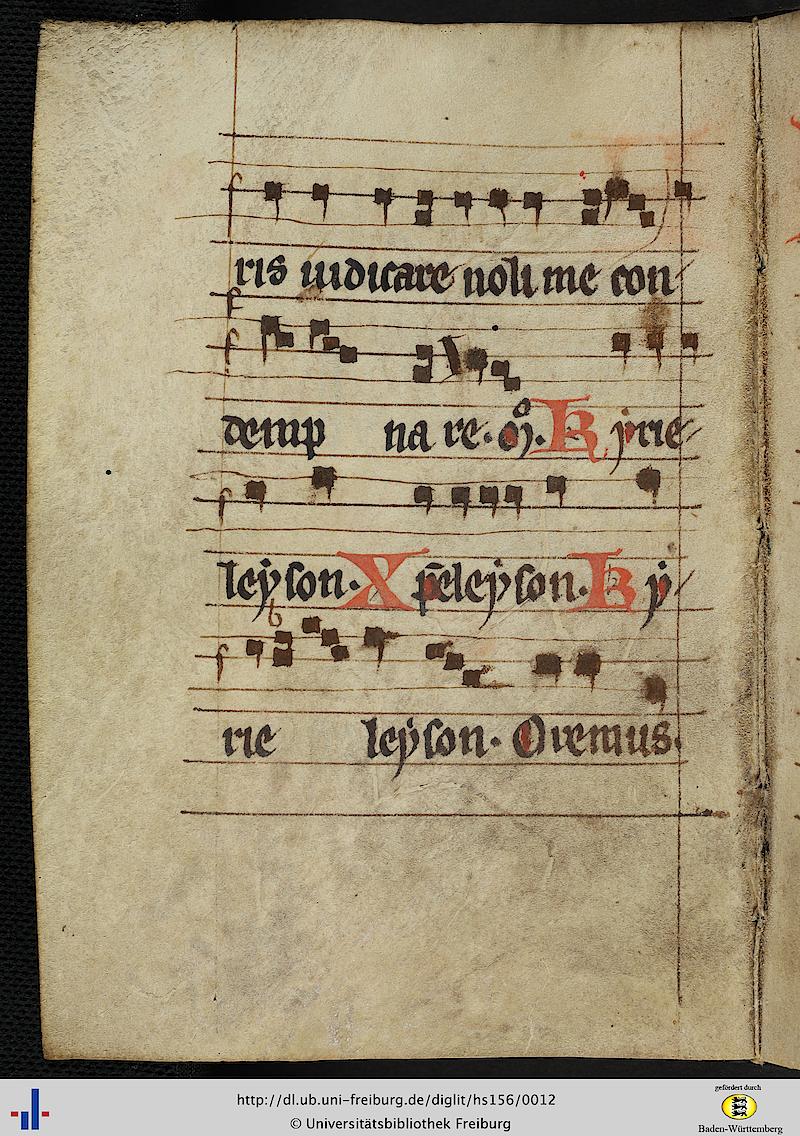 ris iudicare noli me con
dempnare. Qͦ. Kyrie
leyson. Xp̅eleyson. Ky
rie leyson. Oremus.
http://dl.ub.uni-freiburg.de/diglit/hs156/0012
© Universitätsbibliothek Freiburg
gefördert durch
Baden-Württemberg